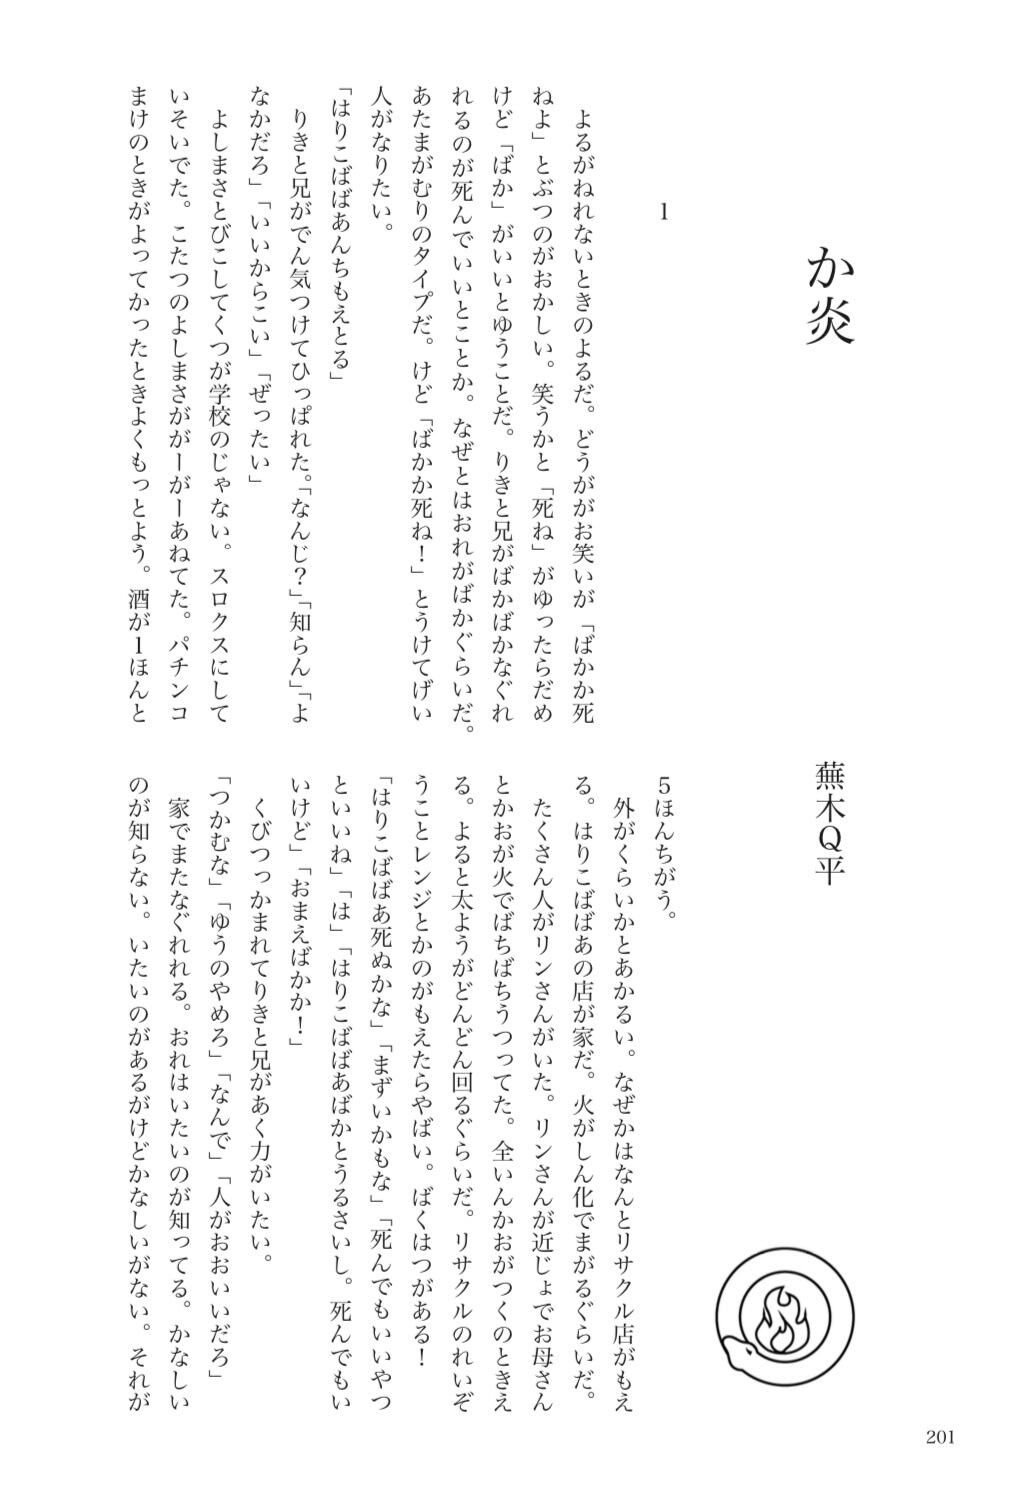 か炎
蕪木Q平
1
　よるがねれないときのよるだ。どうががお笑いが「ばかか死
ねよ」とぶつのがおかしい。笑うかと「死ね」がゆったらだめ
けど「ばか」がいいとゆうことだ。りきと兄がばかばかなぐれ
れるのが死んでいいとことか。なぜとはおれがばかぐらいだ。
あたまがむりのタイプだ。けど「ばかか死ね！」とうけてげい
人がなりたい。
「はりこばばあんちもえとる」
　りきと兄がでん気つけてひっぱれた。「なんじ？」「知らん」「よ
なかだろ」「いいからこい」「ぜったい」
　よしまさとびこしてくつが学校のじゃない。スロクスにして
いそいでた。こたつのよしまさががーがーあねてた。パチンコ
まけのときがよってかったときよくもっとよう。酒が1ほんと
5ほんちがう。
　外がくらいかとあかるい。なぜかはなんとリサクル店がもえ
る。はりこばばあの店が家だ。火がしん化でまがるぐらいだ。
　たくさん人がリンさんがいた。リンさんが近じょでお母さん
とかおが火でばちばちうつってた。全いんかおがつくのときえ
る。よると太ようがどんどん回るぐらいだ。リサクルのれいぞ
うことレンジとかのがもえたらやばい。ばくはつがある！
「はりこばばあ死ぬかな」「まずいかもな」「死んでもいいやつ
といいね」「は」「はりこばばあばかとうるさいし。死んでもい
いけど」「おまえばかか！」
　くびつっかまれてりきと兄があく力がいたい。
「つかむな」「ゆうのやめろ」「なんで」「人がおおいいだろ」
　家でまたなぐれれる。おれはいたいのが知ってる。かなしい
のが知らない。いたいのがあるがけどかなしいがない。それが
201